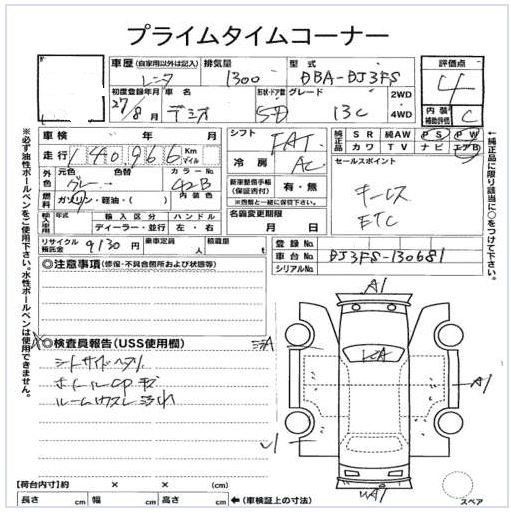 プライムタイムコーナー
車歴 (自家用以外は記入) 排気量 型式 評価点
レンタ 1300 DBA-DJ3FS 4
初度登録年月 車名 形状・ドア数 グレード 2WD
27/8月 デミオ 5D 13C 4WD
内装補助評価 C
車検 年 月 シフト FAT 純正品 SR 純AW PS PW
走行 140,966 Km マイル 冷房 AC カワ TV ナビ エアB
外色 元色 色替 カラーNo. 新車整備手帳(保証書付) 有・無 セールスポイント
グレー 42B ※西暦と一緒に保管下さい。 キーレス
燃料 ガソリン・軽油・( ) 内装色 名義変更期限 ETC
輸入車用 年式 輸入区分 ハンドル 月 日
ディーラー・並行 左・右
リサイクル預託金 9130円 乗車定員 人 積載量 t 登録No.
車台No. DJ3FS-130681
シリアルNo.
◎注意事項(修復・不具合箇所および状態等)
◎検査員報告(USS使用欄)
シートサイドヘタリ
ルームウスレ 汚れ
A1
A1
【荷台内寸】約 × × (cm)
長さ cm 幅 cm 高さ cm ←(車検証上の寸法)
スペア
※必ず油性ボールペンをご使用下さい。水性ボールペンは使用できません。
←純正品に限り該当に○をつけて下さい。